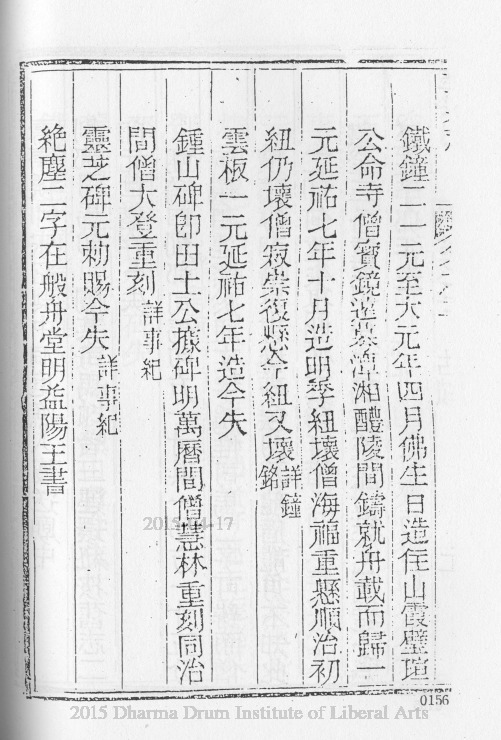 鐵鐘二一元至大元年四月佛生日造住山霞璧瑄
公命寺僧寶鏡澄慕潭湘醴陵間鑄就舟載而歸一
元延祐七年十月造明季紐壞僧海福重懸順治初
紐仍壞僧寂崇復懸今紐又壞詳鐘銘
雲板一元延祐七年造今失
鍾山碑卽田土公據碑明萬曆間僧慧林重刻同治
間僧大登重刻詳事紀
靈芝碑元勅賜今失詳事紀
絶塵二字在般舟堂明益陽王書
0156
2015 Dharma Drum Institute of Liberal Arts